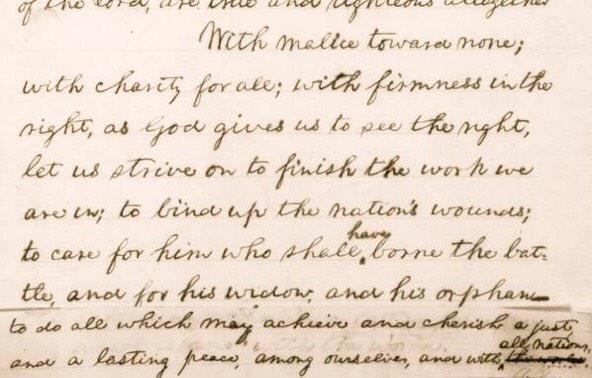 of the Lord, are true and righteous altogether
With malice toward none;
with charity for all; with firmness in the
right, as God gives us to see the right,
let us strive on to finish the work we
are in; to bind up the nation's wounds;
to care for him who shall have borne the bat-
tle, and for his widow, and his orphan—
to do all which may achieve and cherish a just,
and a lasting peace, among ourselves, and with all nations.